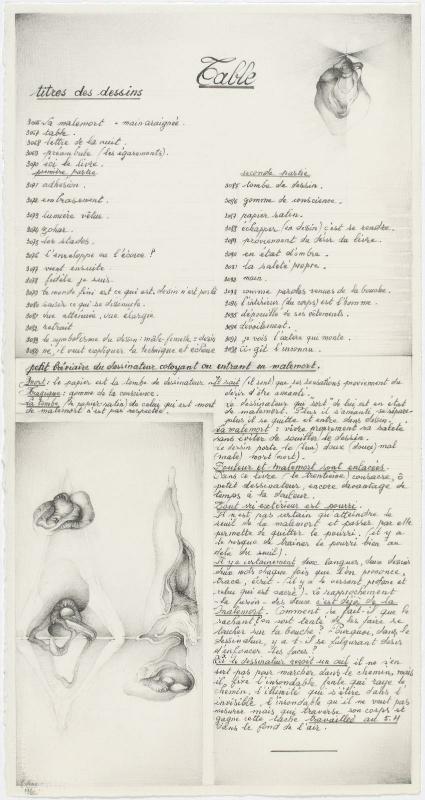 Table
titres des dessins
3066 La malemort - main araignée.
3067 table.
3068 lettre de la nuit.
3069 préambule (les égarements).
3070 ici le livre.
première partie
3071 adhésion.
3072 embrasement.
3073 lumière vêtue.
3074 zohar.
3075 les stades.
3076 l'enveloppe ou l'écorce ?
3077 vient ensuite.
3078 fidèle je suis.
3079 le monde fini est ce qui est, dessin n'est porté
3080 saisir ce qui se
3081 vue atténuée, vue élargie
3082 retrait
3083 le symbolisme du dessin : mâle-femelle = dessin
3084 ne, il veut expliquer la technique et échoue
seconde partie
3085 tombe de dessin.
3086 gomme de conscience.
3087 papier satin.
3088 échapper (en dessin) c'est se rendre.
3089 proviennent du désir du livre.
3090 en état d'ombre.
3091 la saleté propre.
3092 main.
3093 comme paroles venues de la bouche.
3094 l'intérieur (du corps) est l'homme.
3095 dépouillé de ses vêtements.
3096 dévoilement.
3097 je vois l'astre qui monte.
3098 ci-gît l'inconnu.
petit bréviaire du dessinateur côtoyant ou entrant en malemort.
Mort : le papier est la tombe du dessinateur
: gomme de la conscience.
La tombe (le papier satin) de celui qui est mort
de malemort n'est pas respectée.
Il sait (il sent) que ses sensations proviennent du
désir d'être amanté.
Le dessinateur qui "sort" de lui est en état
de malemort. Plus il s'amante, se sépare,
plus il se quitte et entre dans dessin.
La malemort : vivre proprement sa saleté
sans éviter de souiller le dessin.
Le dessin porte le (leur) doux (douce) mal
(male) mort (mort).
Douleur et malemort sont enlacées.
Dans ce livre (le trentième) consacre, ô
petit dessinateur, encore davantage de
temps à ta douleur.
Tout vri extérieur est pourri.
Il n'est pas certain qu'atteindre le
seuil de la malemort et passer par elle
permette de quitter le pourri. (il y a
le risque de traîner le pourri bien au
delà du seuil).
Il y a certainement deux langues, deux dessins
deux mots chaque fois que l'on prononce,
trace, écrit - (il y a le versant profane et
celui qui est sacré). Le rapprochement
- la fusion - des deux c'est déjà de la
malemort. Comment se fait-il que le
sachant, on soit tenté de les faire se
toucher sur la bouche ? Pourquoi, dans le
dessinateur, y a-t-il se fulgurant désir
d'enfoncer les faces ?
Où le dessinateur reçoit un œil il ne s'en
sert pas pour marcher dans le chemin, mais
il fixe l'insondable fente qui raye le
chemin, l'illimité qui s'étire dans l'
invisible, l'insondable qu'il ne veut pas
mesurer mais que traverse son corps et
gagne cette tâche travaillée au 5.H
dans le fond de l'air.